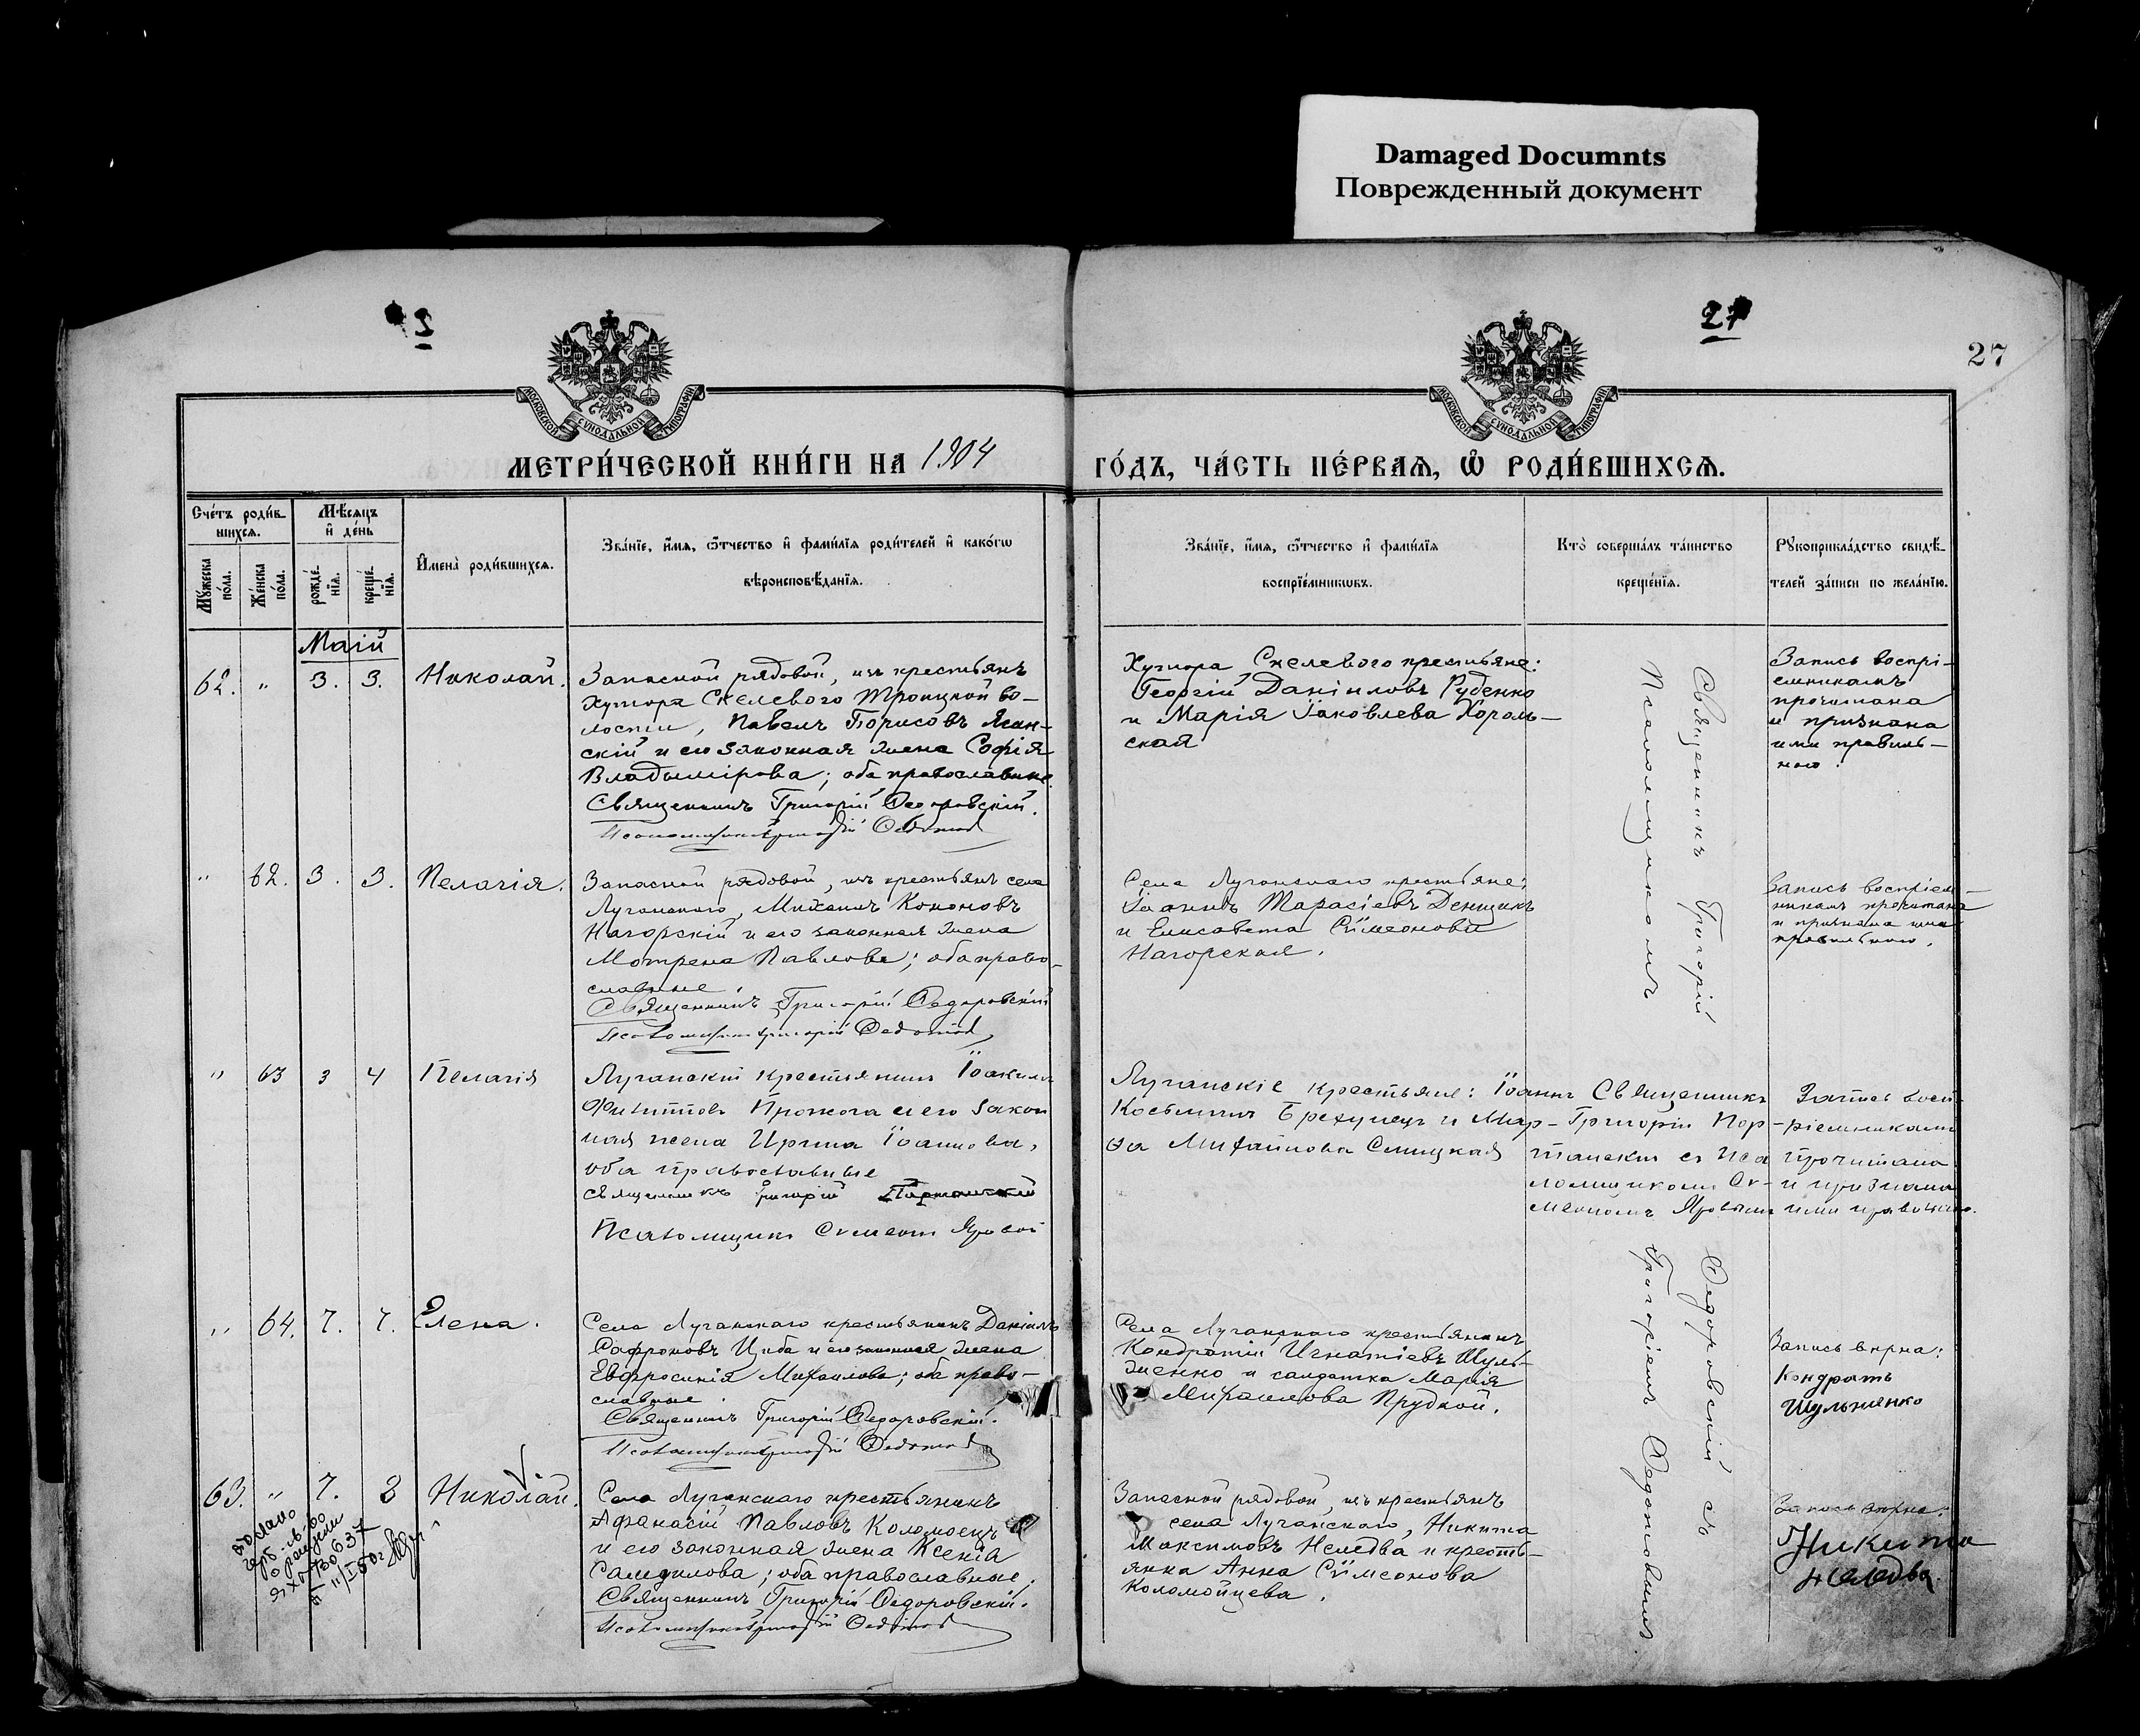 Damaged Documnts
Поврежденный документ
27
27
МОСКОВСКОЙ СѴНОДАЛЬНОЙ ТИПОГРАФІИ
МОСКОВСКОЙ СѴНОДАЛЬНОЙ ТИПОГРАФІИ
МЕТРИ́ЧЕСКОЙ КНИ́ГИ НА 1904
ГО́ДЪ, ЧА́СТЬ ПЕ́РВАЯ, Ѡ РОДИ́ВШИХСЯ.
Счетъ родив-
шихся.
Мужеска пола.
Женска пола.
Мѣсяцъ
и день
рожде-
нія.
креще-
нія.
Имена родившихся.
Званіе, имя, отчество и фамилія родителей и какогѡ
вѣроисповѣданія.
Званіе, имя, отчество и фамилія
воспріемниковъ.
Кто совершалъ таинство
крещенія.
Рукоприкладство свидѣ-
телей записи по желанію.
Маій
62. " 3. 3. Николай.
Запасной рядовой, изъ крестьянъ
хутора Скелевого Троицкой во-
лости, Павелъ Борисовъ Ясин-
скій и его законная жена Софія
Владимірова; оба православные.
Священникъ Григорій Ѳедоровскій.
Псаломщикъ Григорій Ѳедотов
Хутора Скелевого крестьяне:
Георгій Даніиловъ Руденко
и Марія Іаковлева Хороль-
ская
Запись воспрі-
емникамъ
прочитана
и признана
ими правиль-
ною.
Священникъ Григорій Ѳедоровскій съ
Псаломщикомъ Григоріемъ Ѳедотовымъ
" 62. 3. 3. Пелагія.
Запасной рядовой, изъ крестьянъ села
Луганскаго, Михаилъ Кононовъ
Нагорскій и его законная жена
Мотрена Павлова; оба право-
славные
Священникъ Григорій Ѳедоровскій
Псаломщикъ Григорій Ѳедотов
Села Луганскаго крестьяне:
Іоаннъ Тарасіевъ Денщикъ
и Елисавета Сѵмеонова
Нагорская.
Запись воспріем-
никамъ прочитана
и признана ими
правильною.
" 63 3 4 Пелагія
Луганскій крестьянинъ Іоакимъ
Филипповъ Прожога и его закон
ная жена Ирина Іоаннова,
оба православные
Священникъ Григорій Порт
Псаломщикъ Симеонъ Яровой
Луганскіе крестьяне: Іоаннъ
Косьминъ Брехунецъ и Мар-
ѳа Михайлова Слицкая
Священникъ
Григорій Пор-
танскій съ Пса
ломщикомъ Си-
меономъ Яровымъ
Запись восп-
ріемниками
прочитана
и признана
ими правильно.
" 64. 7. 7. Елена.
Села Луганскаго крестьянинъ Даніилъ
Софроновъ Циба и его законная жена
Евфросинія Михаилова; оба право-
славные.
Священникъ Григорій Ѳедоровскій.
Псаломщикъ Григорій Ѳедотов
Села Луганскаго крестьянинъ
Кондратій Игнатіевъ Шуль-
женко и солдатка Марія
Михаилова Прудкой.
Запись вѣрна:
Кондратъ
Шульженко
63. " 7. 8 Николай.
Села Луганскаго крестьянинъ
Аѳанасій Павловъ Коломоецъ
и его законная жена Ксенія
Самуилова; оба православные.
Священникъ Григорій Ѳедоровскій.
Псаломщикъ Григорій Ѳедотов
Запасной рядовой, изъ крестьянъ
села Луганскаго, Никита
Максимовъ Неледва и кресть-
янка Анна Сѵмеонова
Коломойцева.
Запись вѣрна:
Никита
Неледва.
о рождении